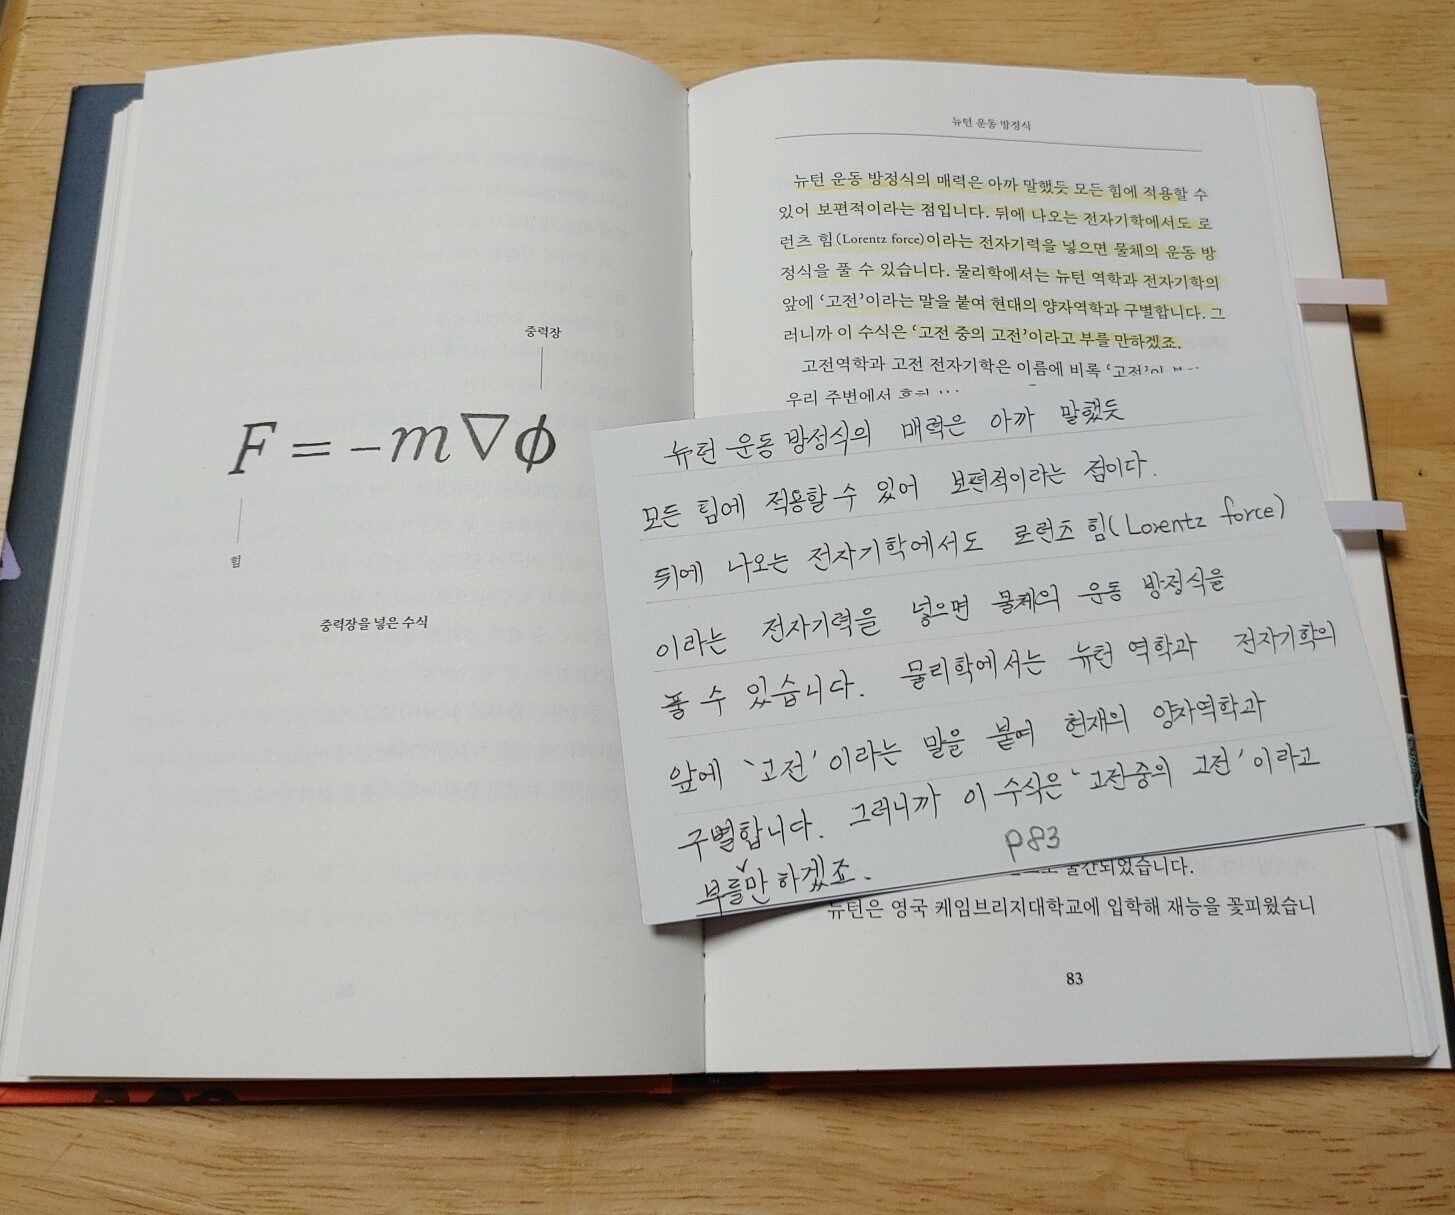 중력장
F = -m∇ϕ
힘
중력장을 넣은 수식
뉴턴 운동 방정식
뉴턴 운동 방정식의 매력은 아까 말했듯 모든 힘에 적용할 수
있어 보편적이라는 점입니다. 뒤에 나오는 전자기학에서도 로
런츠 힘(Lorentz force)이라는 전자기력을 넣으면 물체의 운동 방
정식을 풀 수 있습니다. 물리학에서는 뉴턴 역학과 전자기학의
앞에 ‘고전’이라는 말을 붙여 현대의 양자역학과 구별합니다. 그
러니까 이 수식은 ‘고전 중의 고전’이라고 부를 만하겠죠.
고전역학과 고전 전자기학은 이름에 비록 ‘고전’이
우리 주변에서
뉴턴 운동 방정식의 매력은 아까 말했듯
모든 힘에 적용할 수 있어 보편적이라는 점이다.
뒤에 나오는 전자기학에서도 로런츠 힘(Lorentz force)
이라는 전자기력을 넣으면 물체의 운동 방정식을
풀 수 있습니다. 물리학에서는 뉴턴 역학과 전자기학의
앞에 '고전'이라는 말을 붙여 현재의 양자역학과
구별합니다. 그러니까 이 수식은 '고전중의 고전'이라고
부를만 하겠죠.
P83
출간되었습니다.
뉴턴은 영국 케임브리지대학교에 입학해 재능을 꽃피웠습니
83